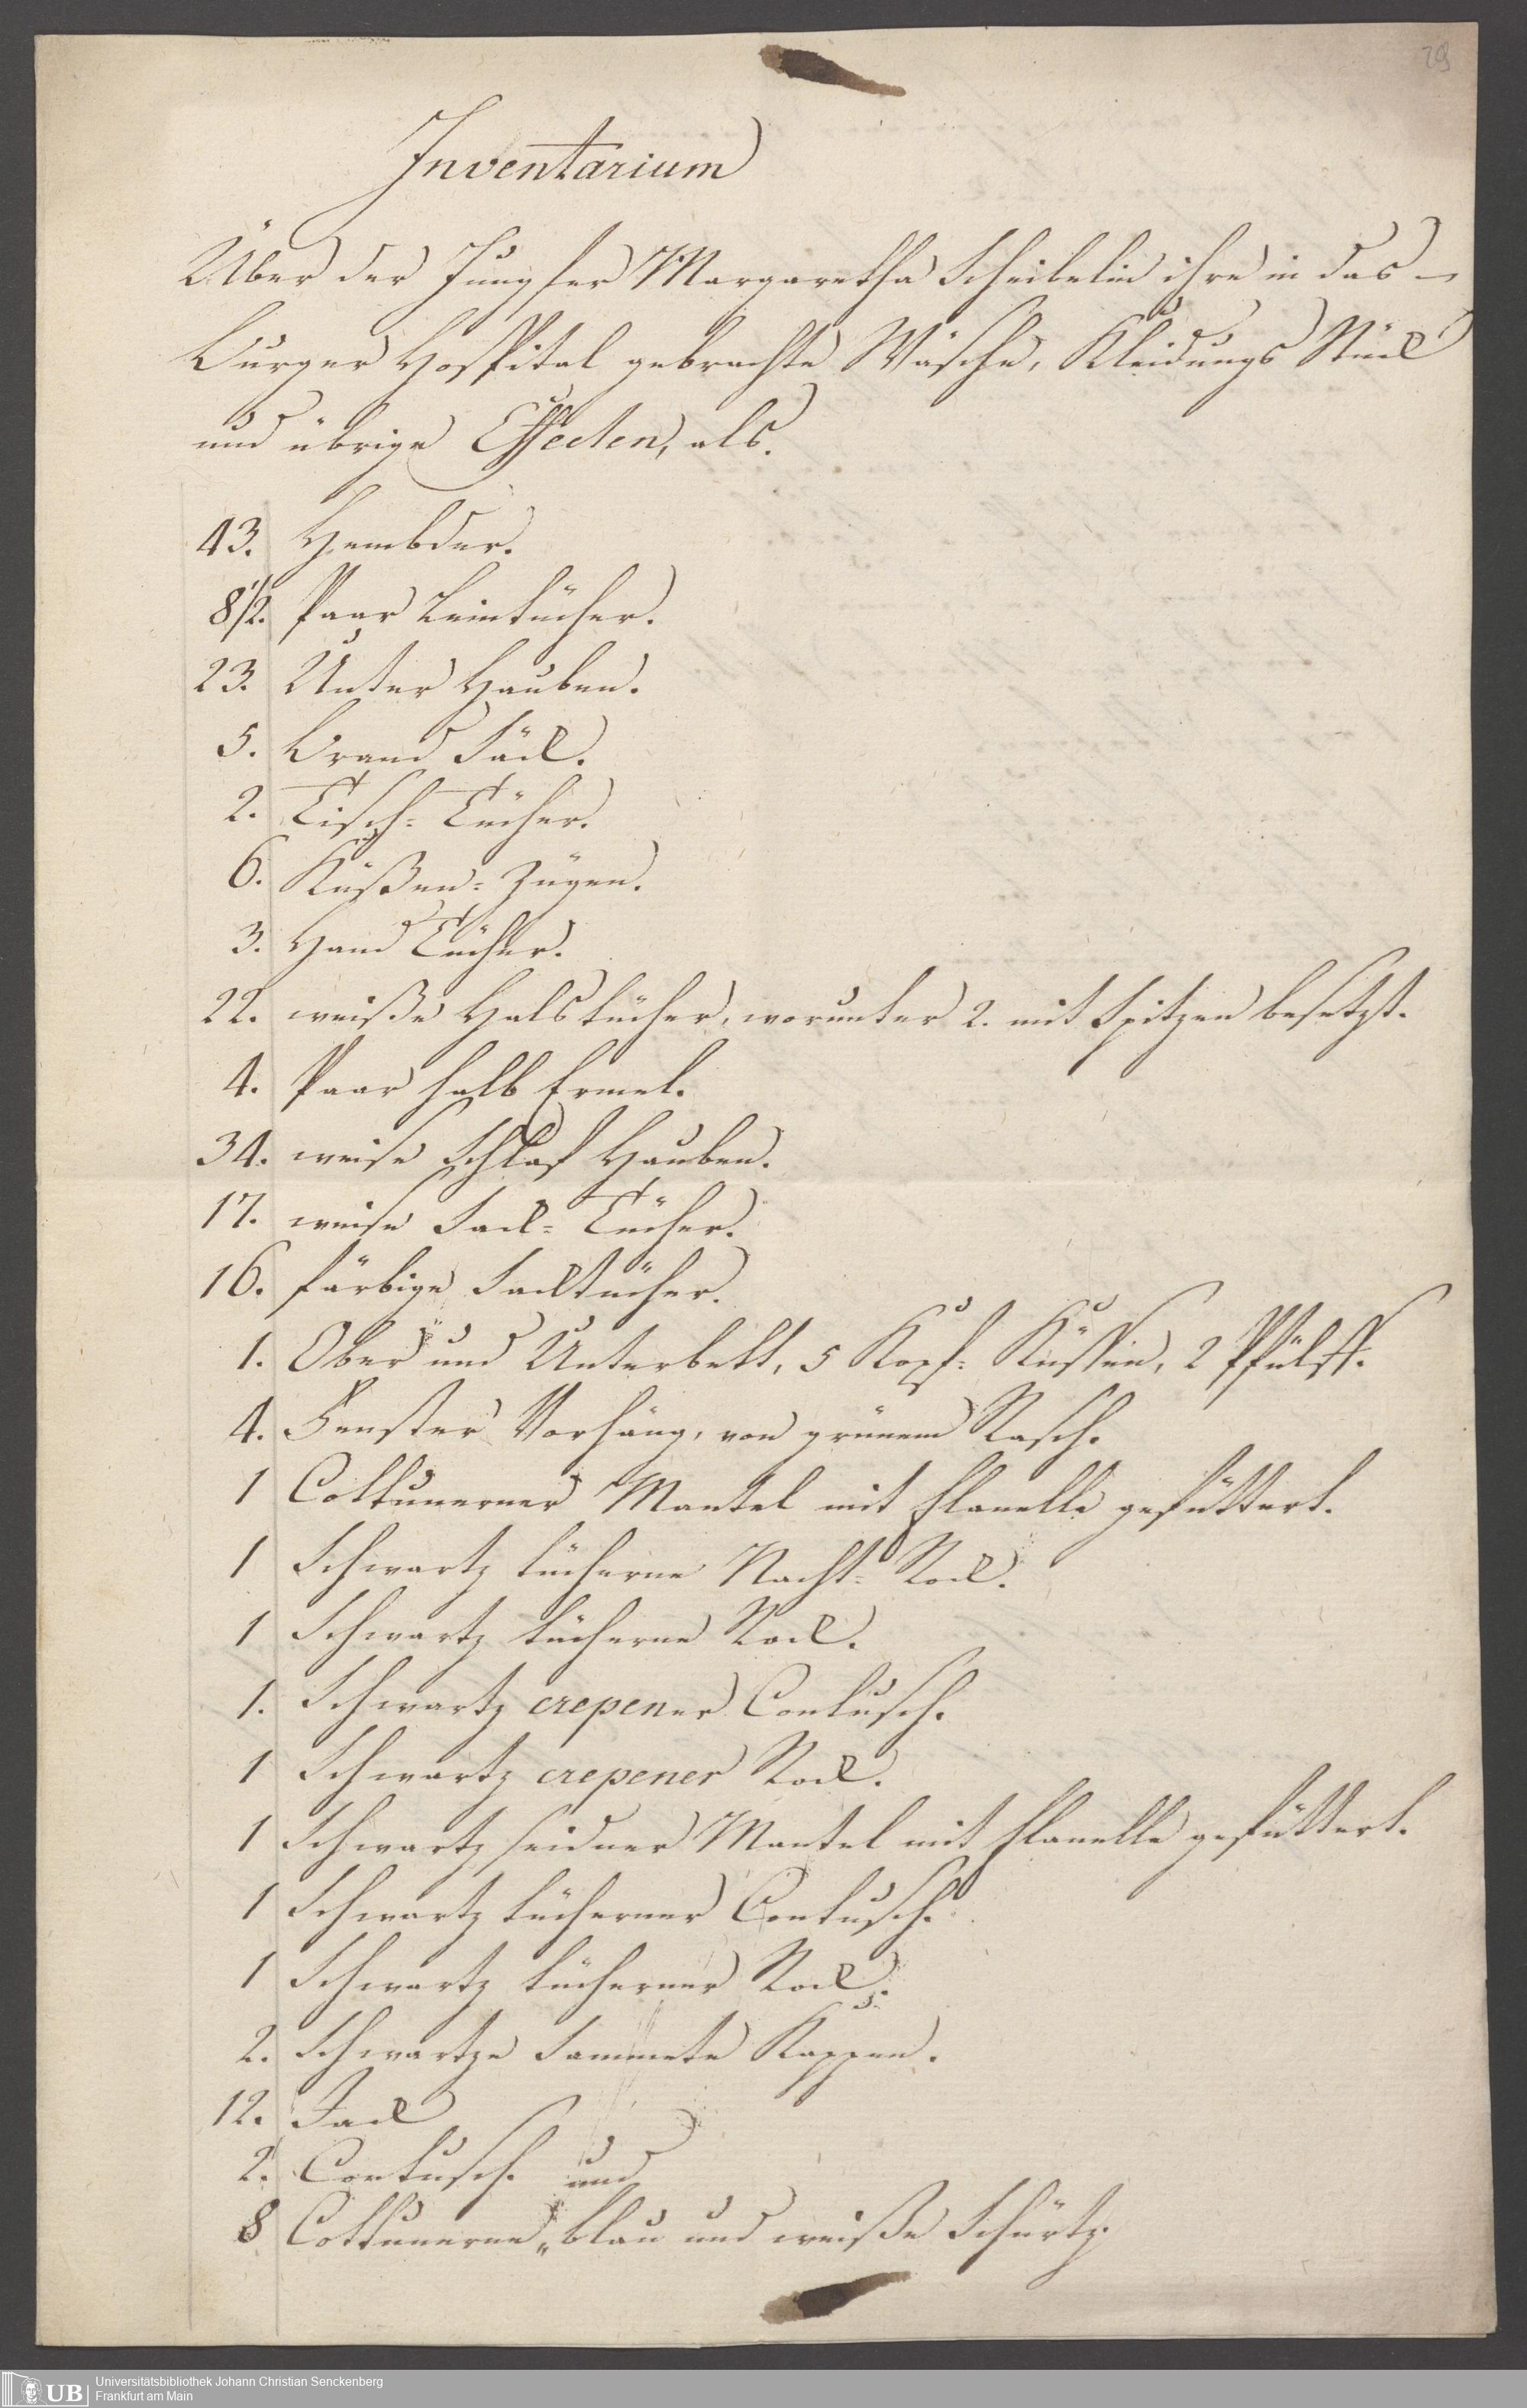 29
Inventarium
Über der Jungfer Margaretha Scheibelin ihre in das
Burger Hospital gebrachte Wäsche, Kleidungs Stück
und übrige Effecten, als.
43. Hembder.
8 1/2. Paar Leintücher.
23. Unter Hauben.
5. Brand Säck.
2. Tisch= Tücher.
6. Küßen= Zügen.
3. Hand Tücher.
22. weiße Halstücher, worunter 2. mit Spitzen besetzt.
4. Paar halb Ermel.
34. weise Schlaf Hauben.
17. weise Sack= Tücher.
16. färbige Sacktücher.
1. Ober und Unterbett, 5 Kopf= Küssen, 2 Pfülff.
4. Fenster Vorhäng, von grünem Rasch.
1 Cottunerner Mantel mit Flanelle gefüttert.
1 Schwartz tücherne Nacht= Rock.
1 Schwartz tücherne Rock.
1. Schwartz crepener Contusch.
1 Schwartz crepener Rock.
1 Schwartz seidner Mantel mit Flanelle gefüttert.
1 Schwartz tücherner Contusch.
1 Schwartz tücherner Rock.
2. Schwartze Sammete Kappen.
12. Jack
2. Contusch. und
8 Cottunerne „ blau und weiße Schürtz.
UB
Universitätsbibliothek Johann Christian Senckenberg
Frankfurt am Main